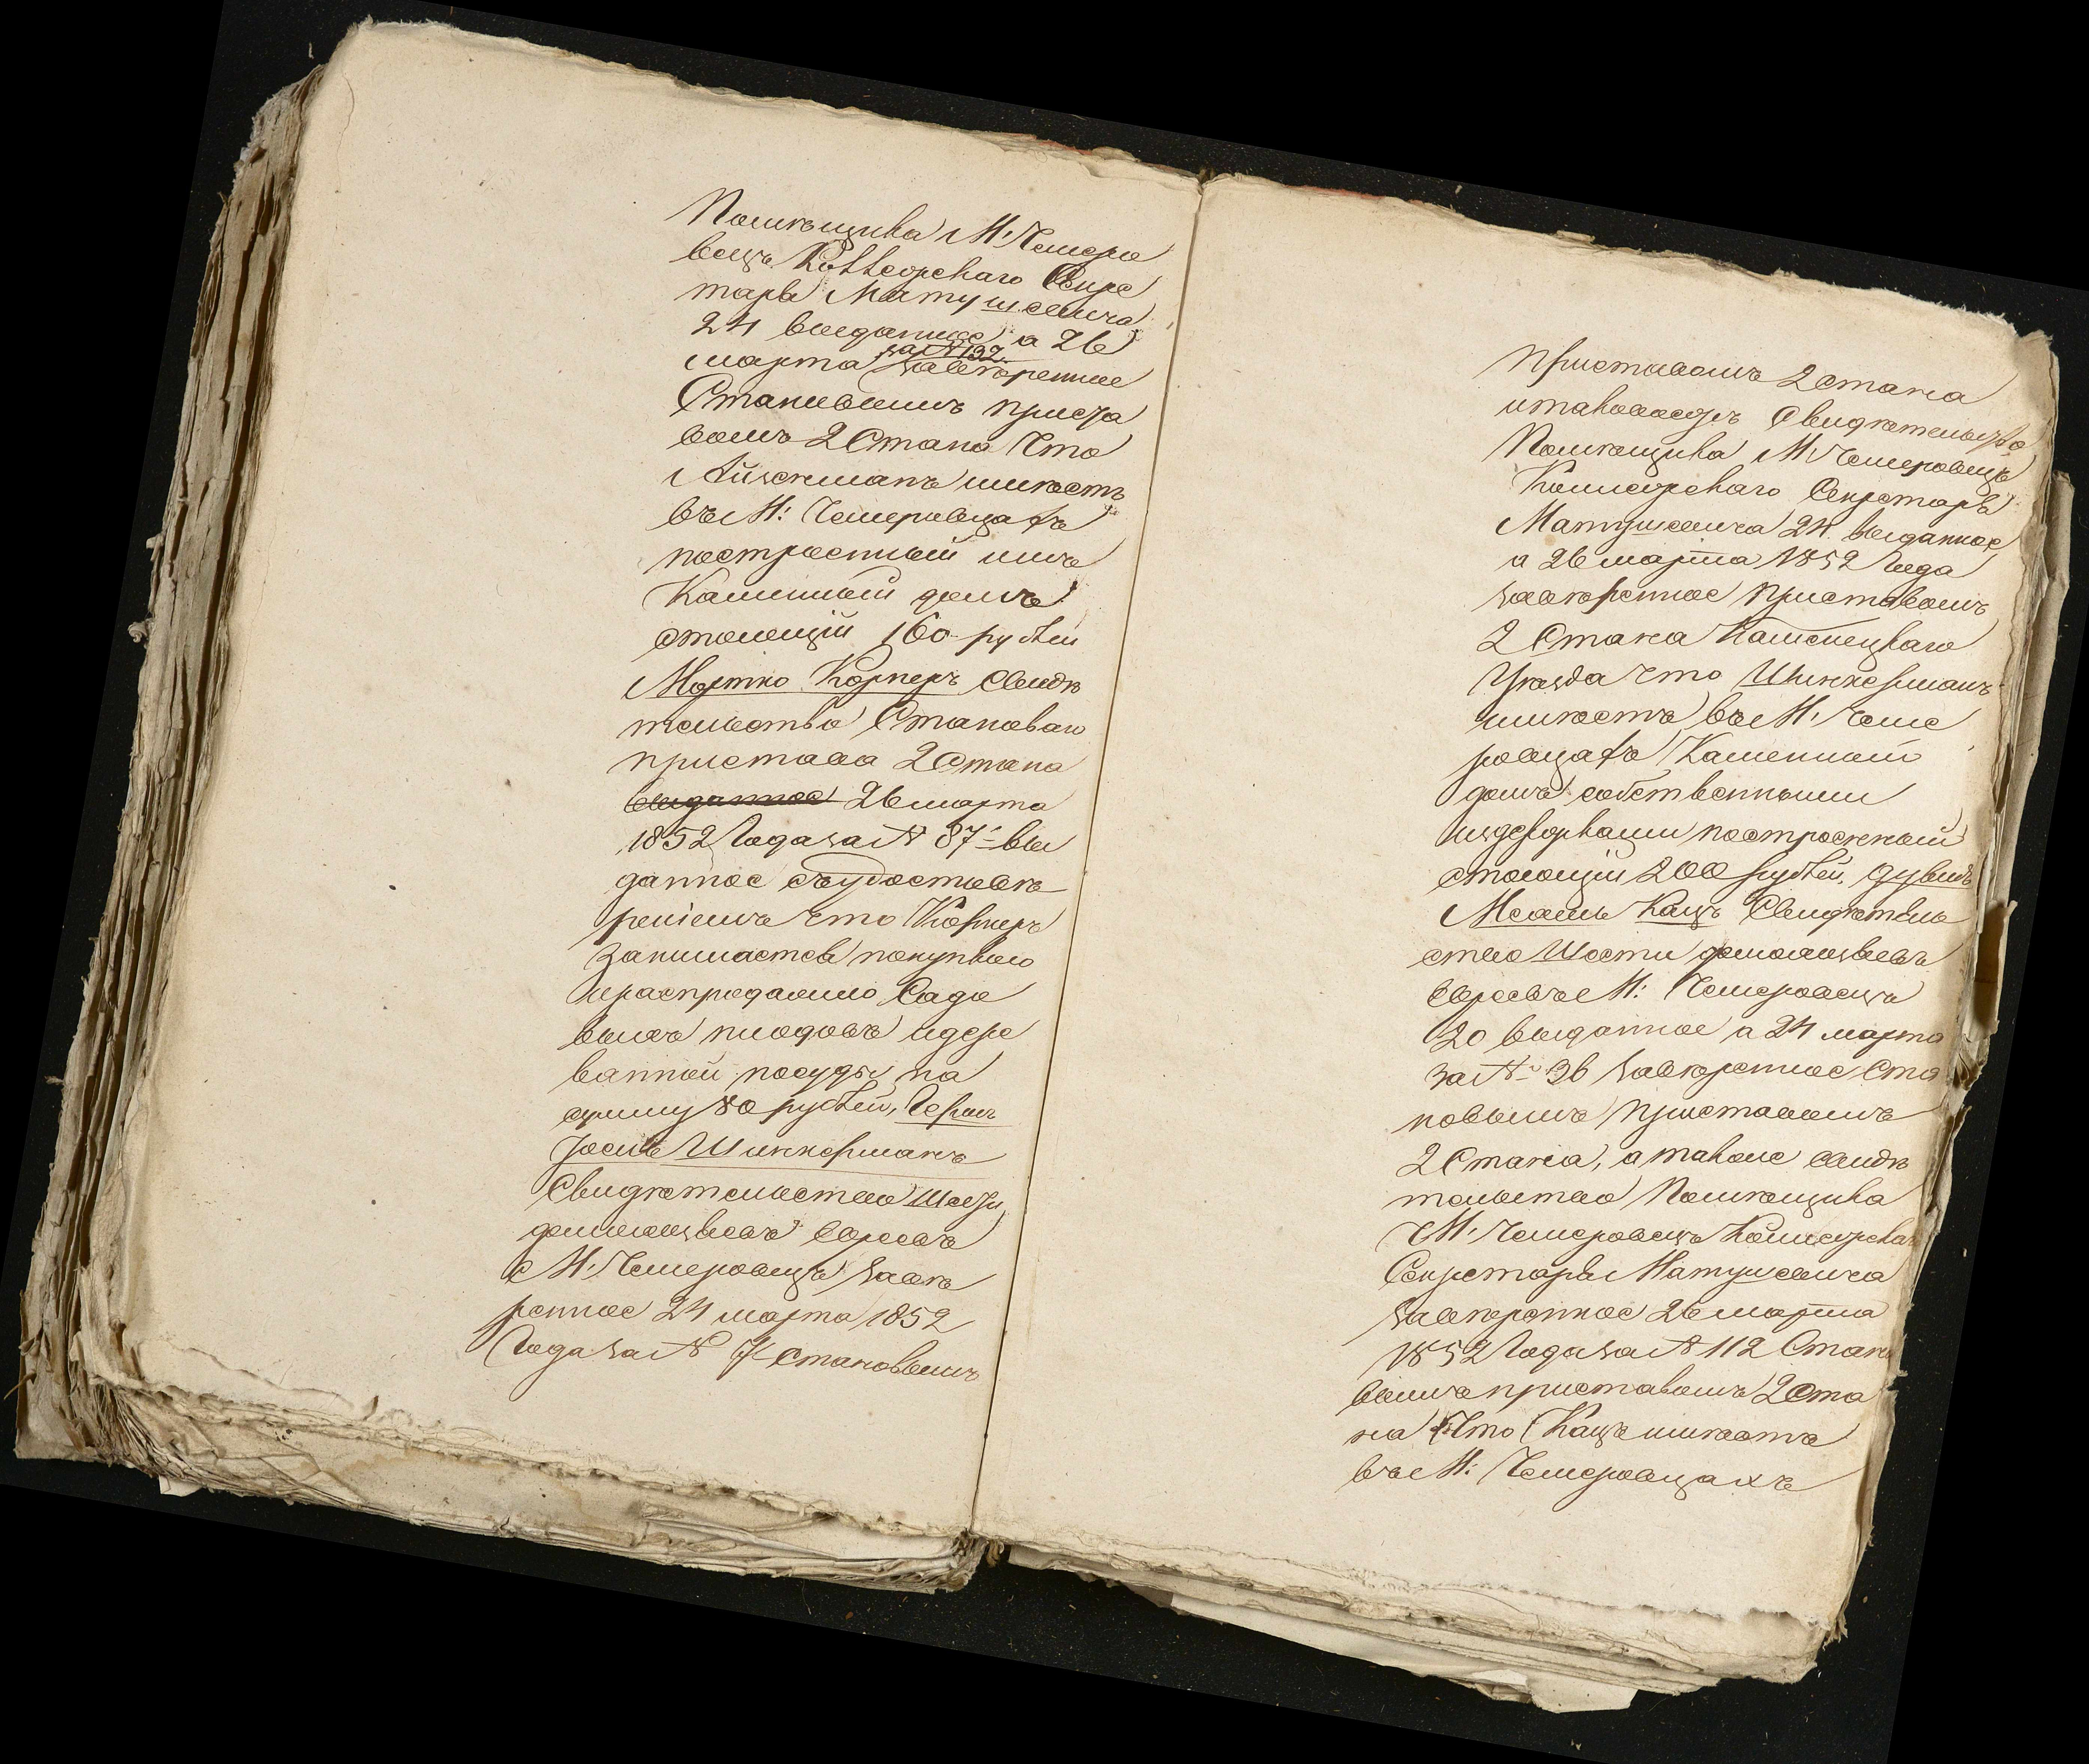 Помѣщика М: Чемеро
вецъ Коллежскаго Секре
таря Матушевича
24 выданное а 26
за № 192.
марта завѣренное
Становымъ приста
вомъ 2 Стана что
Айзенманъ имѣетъ
въ М: Чемеровцахъ
построенный имъ
Каменный домъ
стоющій 160 рублей
Мортко Корнеръ Свидѣ
тельство Становаго
пристава 2 Стана
выданное 26 марта
1852 Года за № 87 вы
данное съ удостовѣ
реніемъ что Корнеръ
занимается покупкою
и распродажею Садо
выхъ плодовъ и дере
вянной посуды на
сумму 80 рублей, Герш
Іось Шинкерманъ
Свидѣтельство Шести
домохозяевъ Евреевъ
М: Чемеровецъ завѣ
ренное 24 марта 1852
Года за № Становымъ
Приставомъ 2 стана
и таковоежъ Свидѣтельство
Помѣщика М: Чемеровецъ
Коллежскаго Секретаря
Матушевича 24 выданное
а 26 марта 1852 Года
завѣренное Приставомъ
2 Стана Каменецкаго
Уѣзда что Шинкерманъ
имѣетъ въ М: Чеме
ровцахъ Каменный
домъ собственными
издержками построенный
стоющій 200 рублей, Дувидъ
Кацъ Свидѣтель
ство Шести домохозяевъ
Евреевъ М: Чемеровецъ
20 выданное а 24 марта
за № 96 завѣренное Ста
новымъ Приставомъ
2 Стана, а также свидѣ
тельство Помѣщика
М: Чемеровецъ Коллежскаго
Секретаря Матушевича
завѣренное 26 марта
1852 Года за № 112 Стано
вымъ приставомъ 2 Ста
на Что Кацъ имѣетъ
въ М: Чемеровцахъ